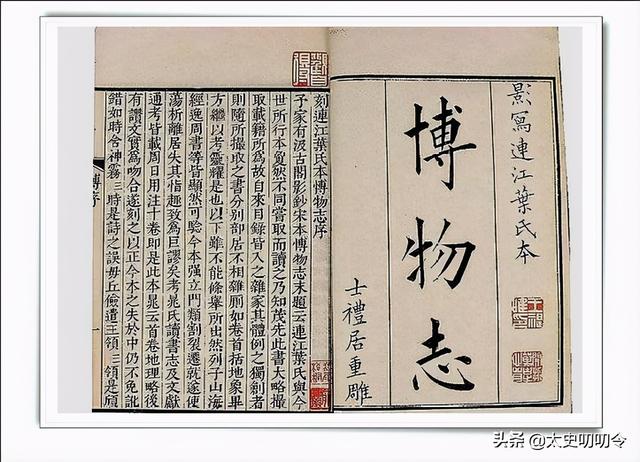 影寫連江葉氏本
博物志
士禮居重雕
刻連江葉氏本博物志序
予家有汲古閣影鈔宋本博物志末題云連江葉氏與今
世所行本敻然不同嘗取而讀之乃知茂先此書大略撮
取載籍所為故自來目錄皆入之雜家其體例之獨創者
則隨所撮取之書分別部居不相雜厠如卷首括地象畢
方繼以考靈耀是也以下雖不能條舉所出然列子山海
經逸周書等皆顯然可驗今本強立門類割裂遷就遂使
蕩析離居失其指趣致為巨謬矣考晁氏讀書志及文獻
通考皆載周日用注十卷即是此本晁云首卷地理略後
有讚文實為吻合遂刻之以正今本之失於中仍不免訛
錯如時含神霧三時是詩之誤毋丘儉遣王領三領是頎
一
头条 @太史叨叨令